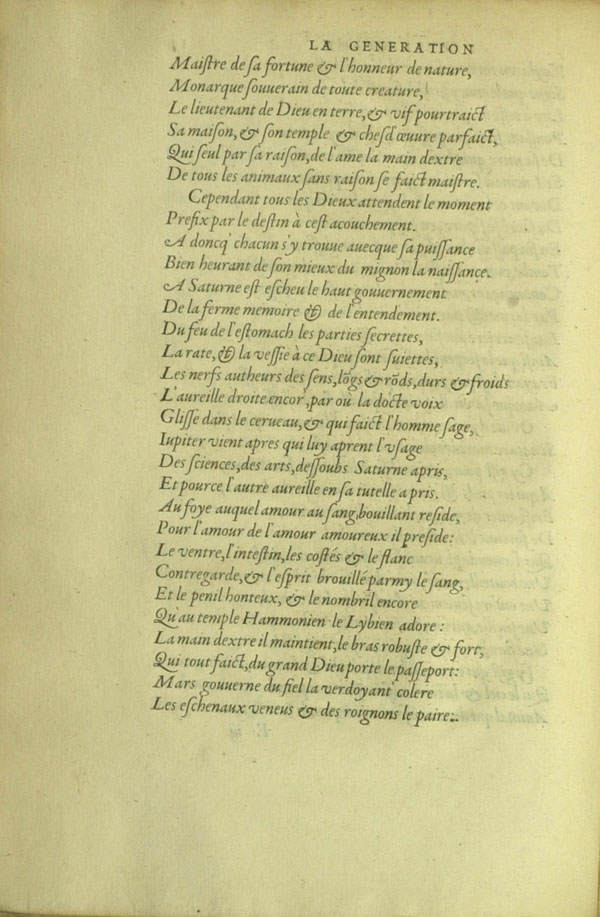 LA GENERATION
Maiſtre de ſa fortune & l'honneur de nature,
Monarque ſouuerain de toute creature,
Le lieutenant de Dieu en terre, & vif pourtraict
Sa maiſon, & ſon temple & chefd'œuure parfaict,
Qui ſeul par ſa raiſon, de l'ame la main dextre
De tous les animaux ſans raiſon ſe faict maiſtre.
Cependant tous les Dieux attendent le moment
Prefix par le deſtin à ceſt acouchement.
A doncq' chacun s'y trouue auecque ſa puiſſance
Bien heurant de ſon mieux du mignon la naiſſance.
A Saturne eſt eſcheu le haut gouuernement
De la ferme memoire & de l'entendement.
Du feu de l'eſtomach les parties ſecrettes,
La rate, & la veſſie à ce Dieu ſont ſuiettes,
Les nerfs autheurs des ſens, lõgs & rõds, durs & froids
L'aureille droite encor', par où la docte voix
Gliſſe dans le cerueau, & qui faict l'homme ſage,
Iupiter vient apres qui luy aprent l'vſage
Des ſciences, des arts, deſſoubs Saturne apris,
Et pource l'autre aureille en ſa tutelle a pris.
Au foye auquel amour au ſang bouillant reſide,
Pour l'amour de l'amour amoureux il preſide:
Le ventre, l'inteſtin, les coſtés & le flanc
Contregarde, & l'eſprit brouillé parmy le ſang,
Et le penil honteux, & le nombril encore
Qu'au temple Hammonien le Lybien adore :
La main dextre il maintient, le bras robuſte & fort,
Qui tout faict, du grand Dieu porte le paſſeport:
Mars gouuerne du fiel la verdoyant' colere
Les eſchenaux veneus & des roignons le paire:.